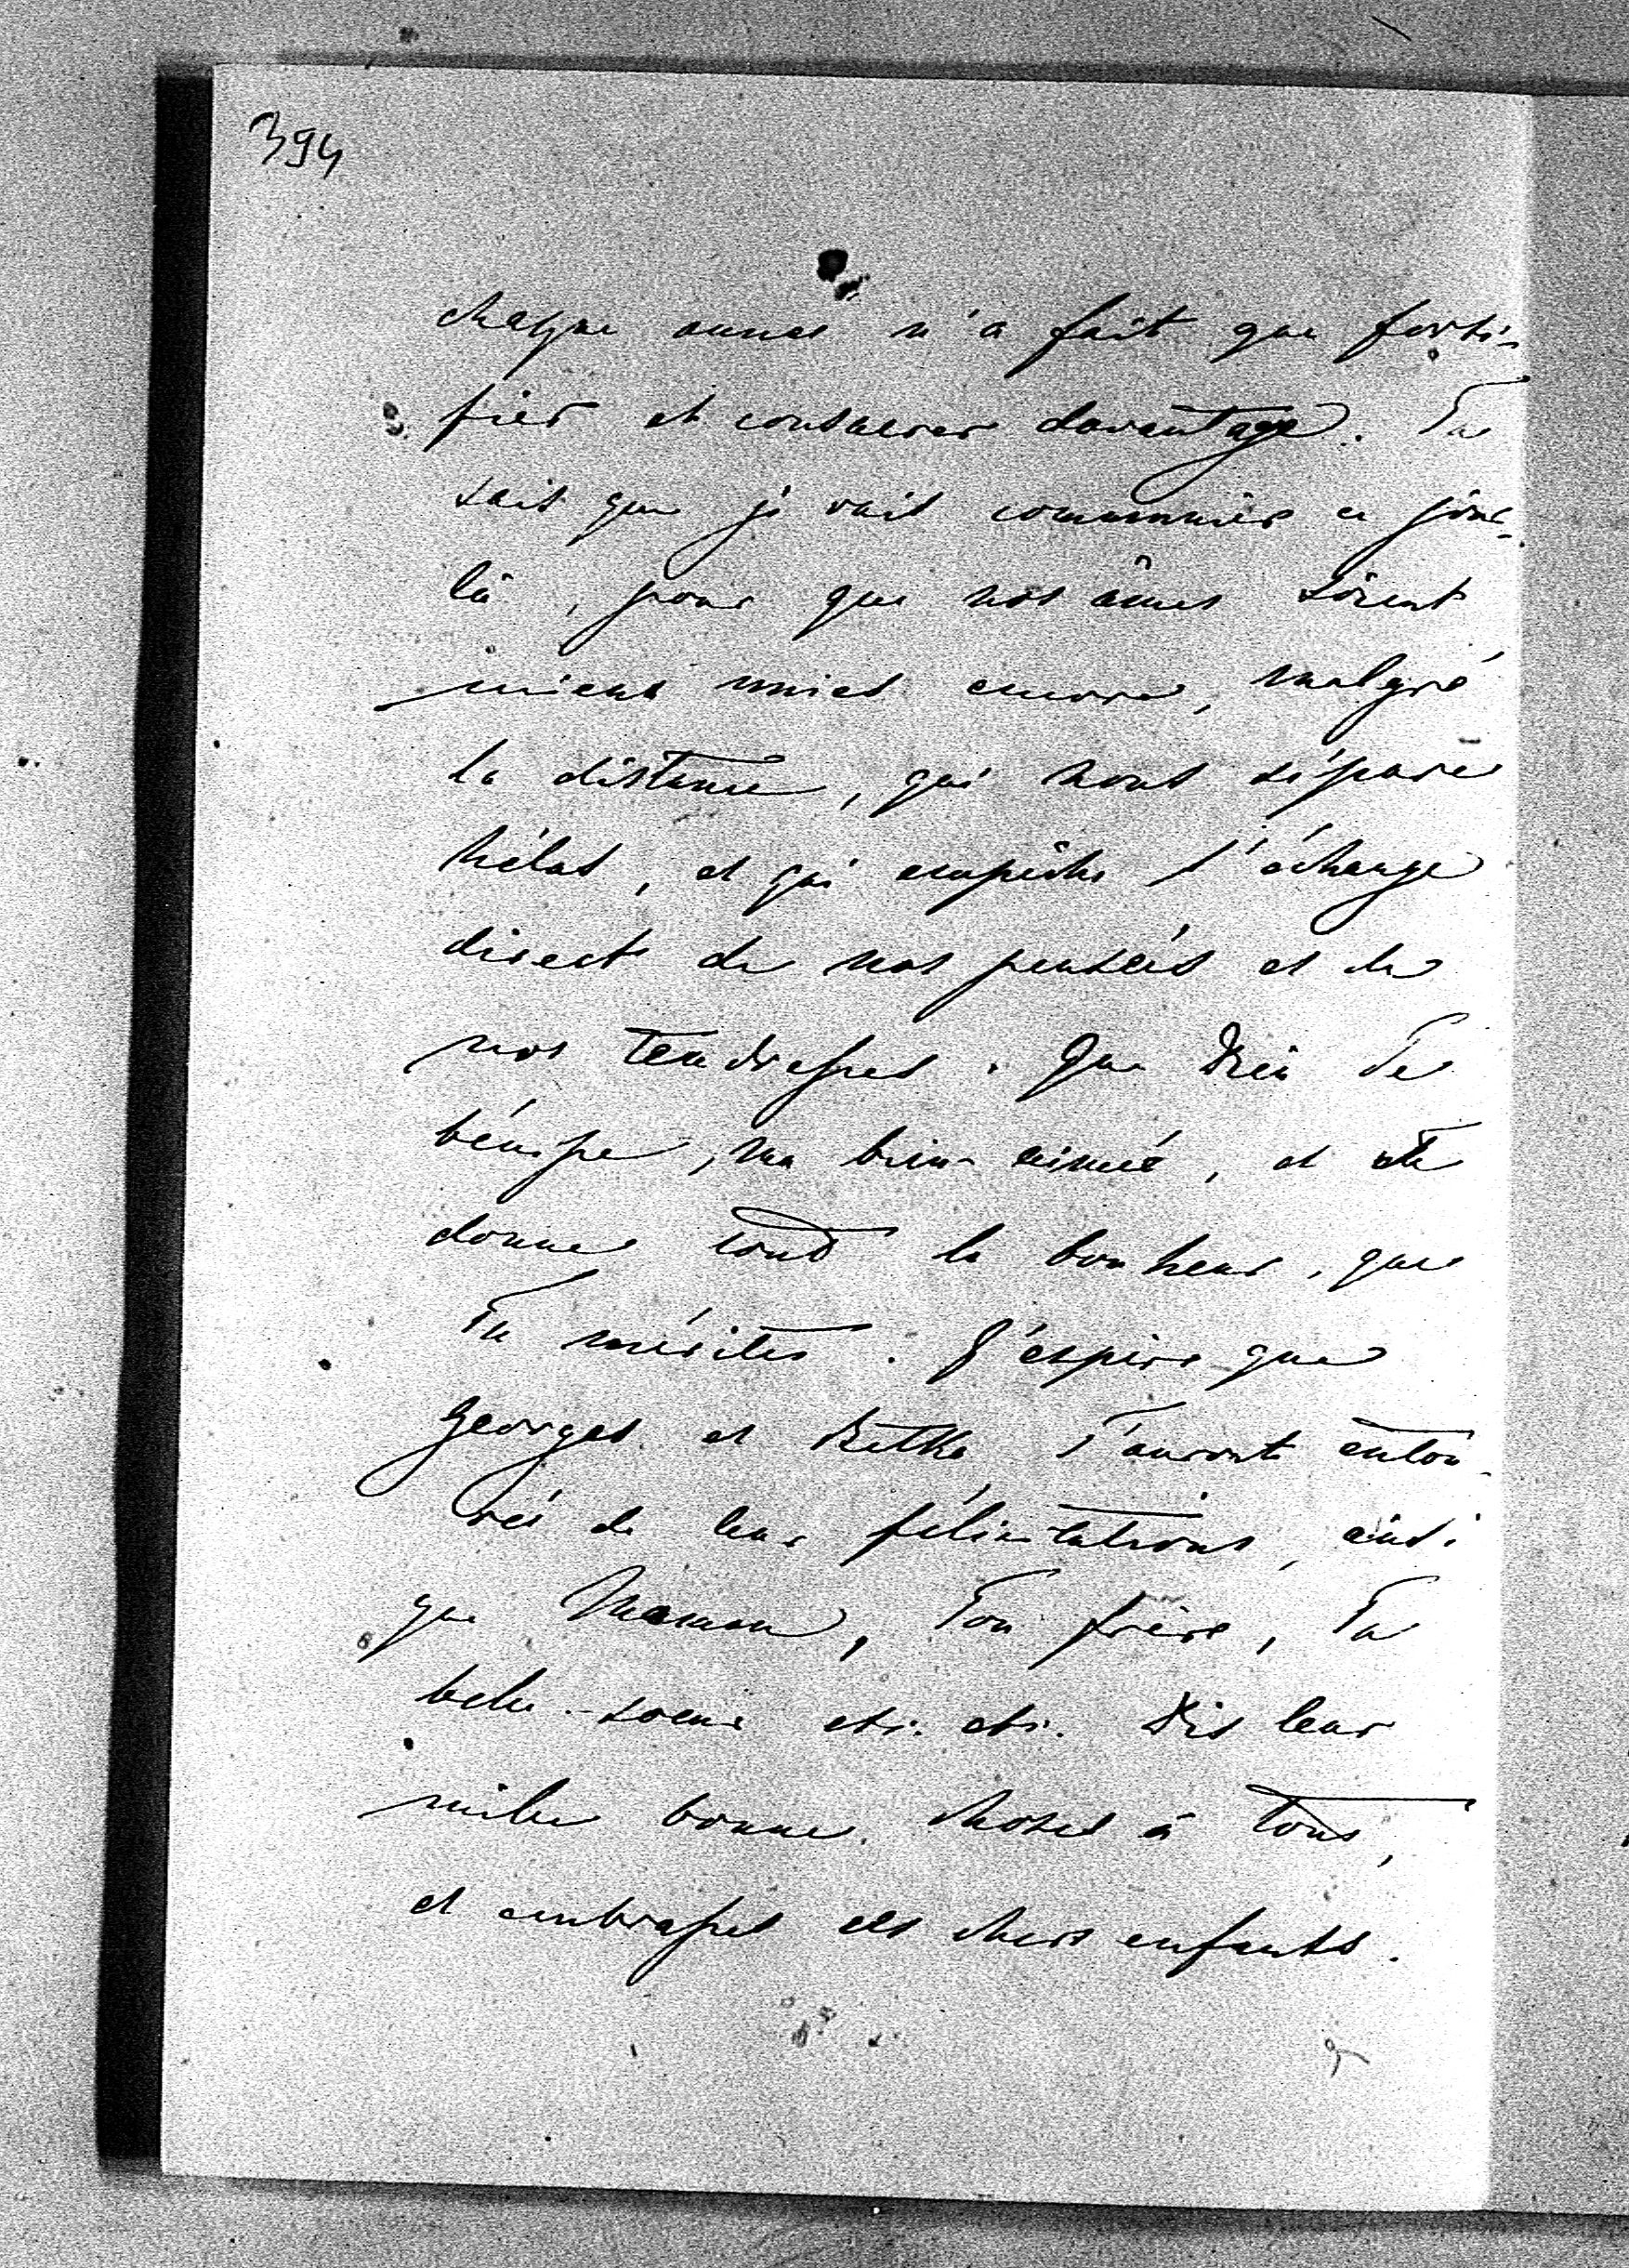 394
chaque année n'a fait que forti-
fier et consacrer davantage. Tu
sais que je vais communier ce jour-
là, pour que nos âmes soient
mieux unies encore, malgré
la distance, qui nous sépare
hélas, et qui empêche l'échange
direct de nos pensées et de
nos tendresses. Que Dieu Te
bénisse, ma bien-aimée, et Te
donne tout le bonheur, que
Tu mérites. J'espère que
Georges et T'auront entou-
rée de leurs félicitations, ainsi
que Maman, Ton frère, Ta
belle-soeur etc. etc. Dis leur
mille bonnes choses à tous,
et embrasses les chers enfants.